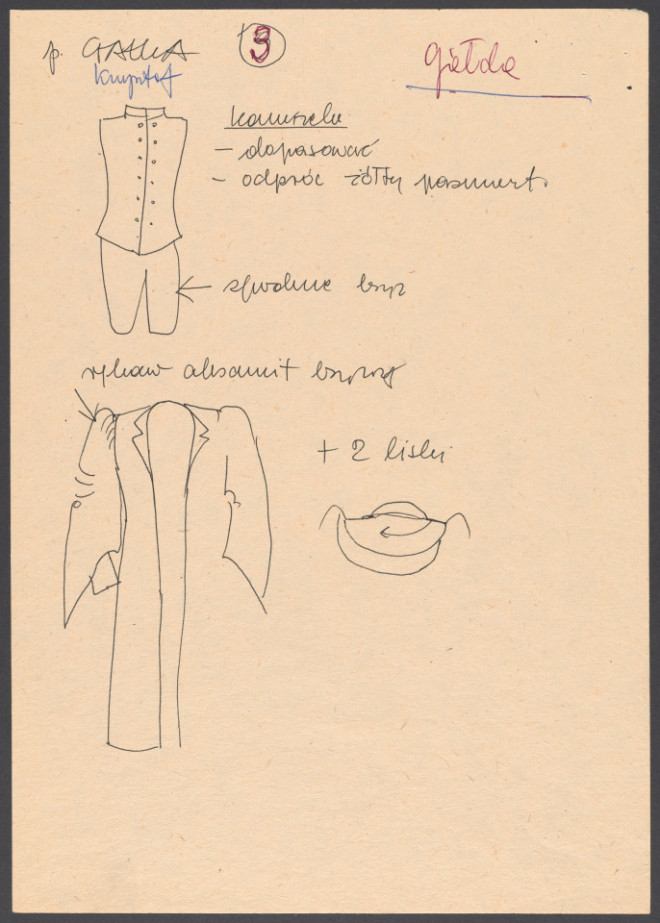 p. GAŁKA
Krzysztof
3
Giełda
kamizela
- dopasować
- odpróć żółty pasment.
spodnie brąz
rękaw aksamit brązowy
+ 2 liski